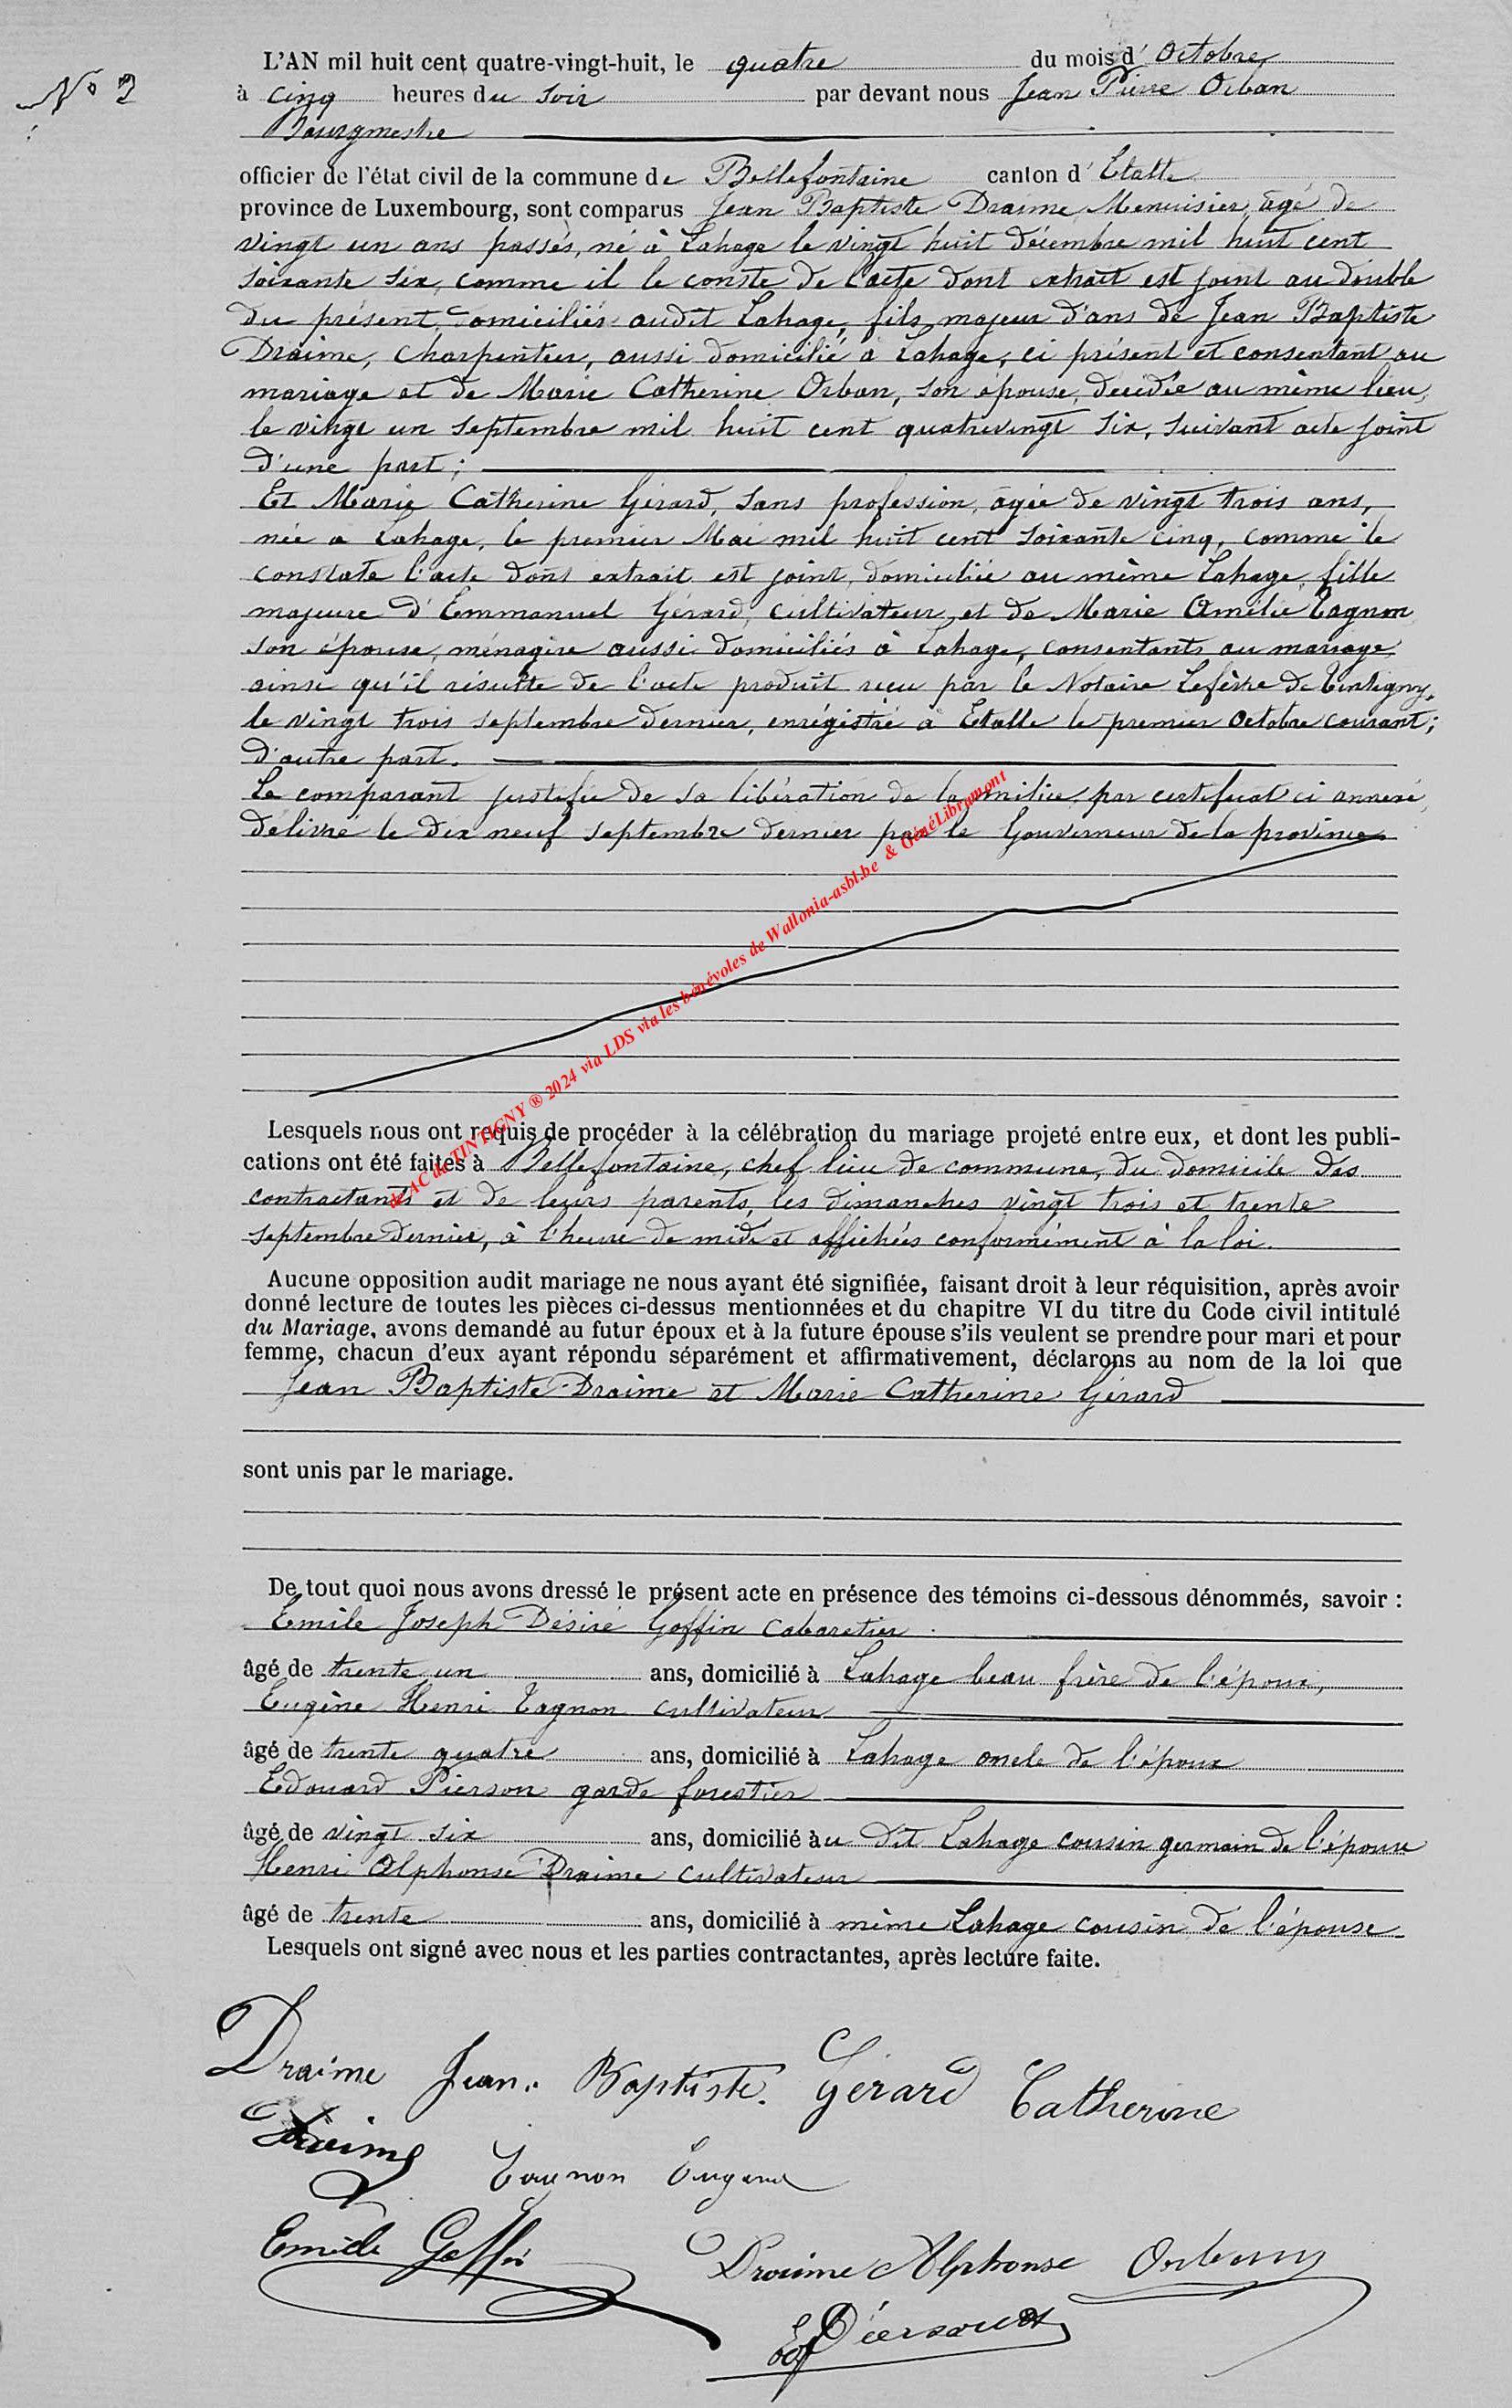 N° 2
L'AN mil huit cent quatre-vingt-huit, le quatre du mois d' Octobre
à cinq heures du soir par devant nous Jean Pierre Orban
Bourgmestre
officier de l'état civil de la commune de Bellefontaine canton d' Etalle
province de Luxembourg, sont comparus Jean Baptiste Draime, Menuisier, âgé de
vingt un ans passés, né à Lahage le vingt huit décembre mil huit cent
soixante six, comme il le conste de l'acte dont extrait est joint au double
du présent, domiciliés audit Lahage, fils majeur d'ans de Jean Baptiste
Draime, charpentier, aussi domicilié à Lahage, ci présent et consentant au
mariage et de Marie Catherine Orban, son épouse, décédée au même lieu,
le vingt un septembre mil huit cent quatrevingt six, suivant acte joint
d'une part ;
Et Marie Catherine Gérard, sans profession, âgée de vingt trois ans,
née a Lahage, le premier Mai mil huit cent soixante cinq, comme le
constate l'acte dont extrait est joint, domiciliée au même Lahage, fille
majeure d'Emmanuel Gérard, cultivateur, et de Marie Amélie Tagnon
son épouse, ménagère aussi domiciliés à Lahage, consentants au mariage
ainsi qu'il résulte de l'acte produit reçu par le Notaire Lefèvre de Tintigny,
le vingt trois septembre dernier, enrégistré à Etalle le premier Octobre courant ;
d'autre part.
Le comparant justifie de sa libération de la milice par certificat ci annexé,
délivré le dix neuf septembre dernier par le Gouverneur de la province
de AC de TINTIGNY ® 2024 via LDS via les bénévoles de Wallonia-asbl.be & GénéLibramont
Lesquels nous ont requis de procéder à la célébration du mariage projeté entre eux, et dont les publi-
cations ont été faites à Bellefontaine, chef lieu de commune, du domicile des
contractants et de leurs parents, les dimanches vingt trois et trente
septembre dernier, à l'heure de midi et affichées conformément à la loi.
Aucune opposition audit mariage ne nous ayant été signifiée, faisant droit à leur réquisition, après avoir
donné lecture de toutes les pièces ci-dessus mentionnées et du chapitre VI du titre du Code civil intitulé
du Mariage, avons demandé au futur époux et à la future épouse s'ils veulent se prendre pour mari et pour
femme, chacun d'eux ayant répondu séparément et affirmativement, déclarons au nom de la loi que
Jean Baptiste Draime et Marie Catherine Gérard
sont unis par le mariage.
De tout quoi nous avons dressé le présent acte en présence des témoins ci-dessous dénommés, savoir :
Emile Joseph Désiré Goffin cabaretier
âgé de trente un ans, domicilié à Lahage beau frère de l'époux,
Eugène Henri Tagnon cultivateur
âgé de trente quatre ans, domicilié à Lahage oncle de l'époux
Edouard Pierson garde forestier
âgé de vingt six ans, domicilié àu dit Lahage cousin germain de l'époux
Henri Alphonse Draime cultivateur
âgé de trente ans, domicilié à même Lahage cousin de l'épouse
Lesquels ont signé avec nous et les parties contractantes, après lecture faite.
Draime Jean Baptiste. Gérard Catherine
Draime Tagnon Eugene
Emile Goffin Draime Alphonse Orban
Ed Pierson